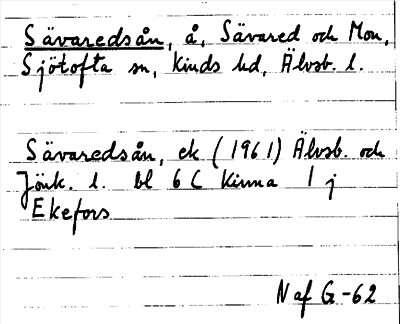 Sävaredsån, å, Sävared och Mon,
Sjötofta sn, Kinds hd, Älvsb. l.
Sävaredsån, ek (1961) Älvsb. och
Jönk. l. bl 6 C Kinna 1 j
Ekefors
N af G -62